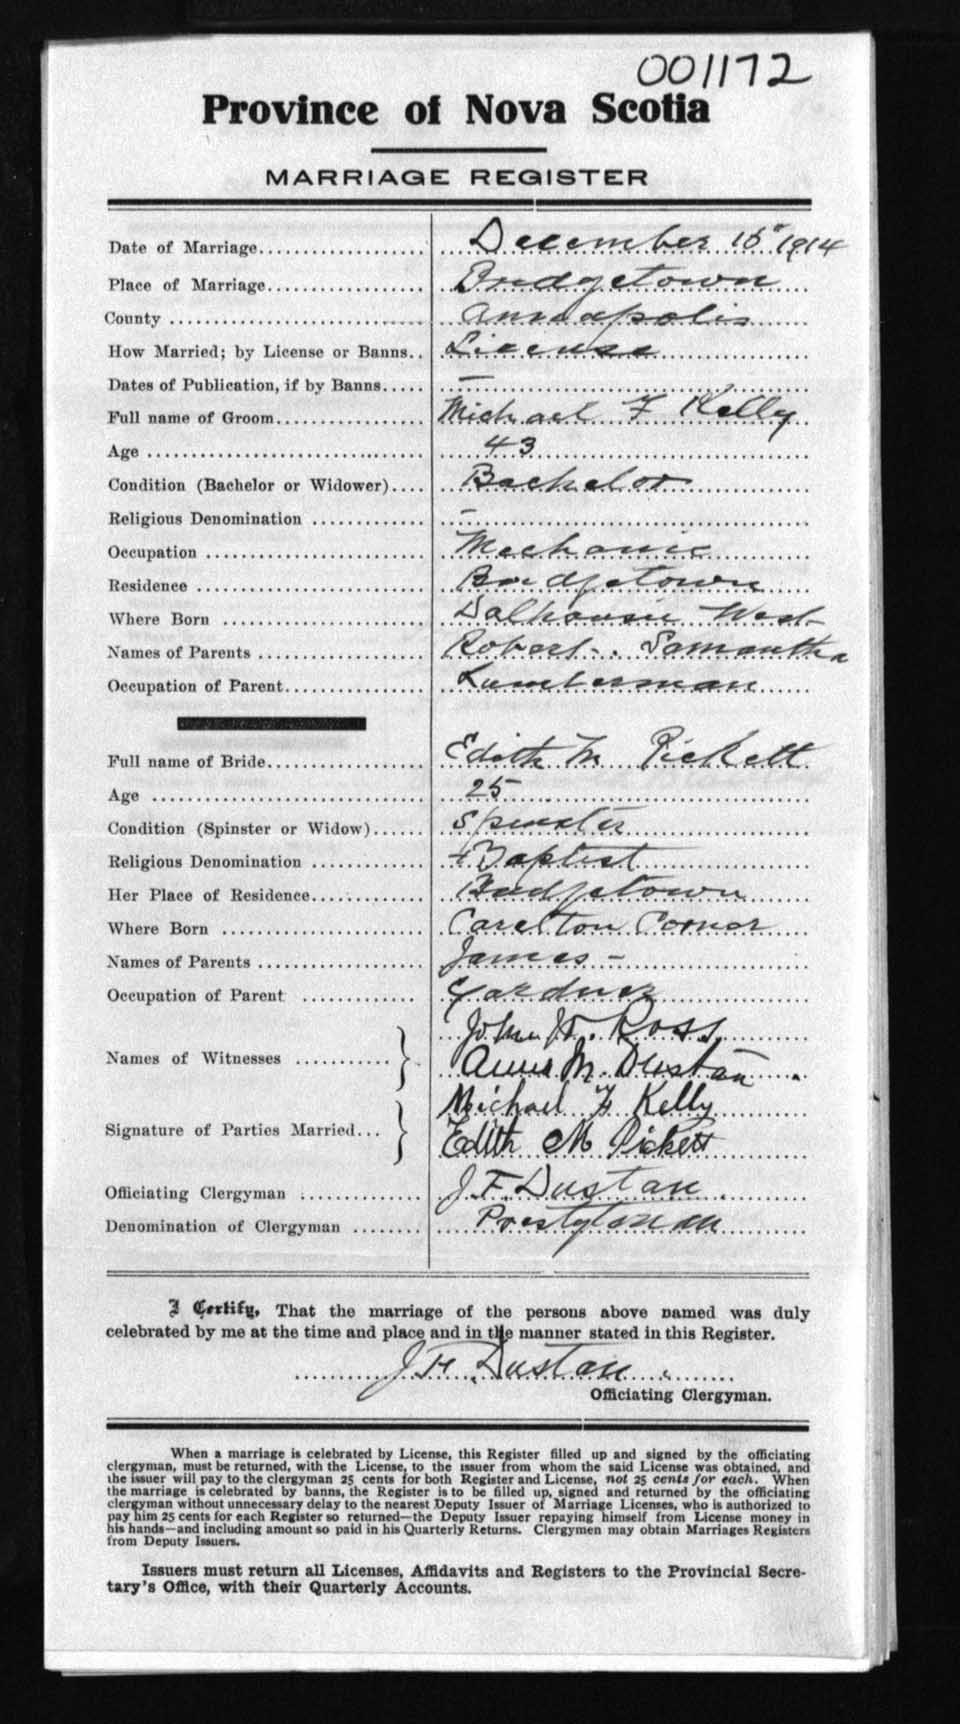 001172
Province of Nova Scotia
MARRIAGE REGISTER
Date of Marriage.................... December 15" 1914
Place of Marriage................... Bridgetown
County .............................. Annapolis
How Married; by License or Banns.. License
Dates of Publication, if by Banns..... —
Full name of Groom................. Michael F Kelly
Age ................................. 43
Condition (Bachelor or Widower).... Bachelor
Religious Denomination ............. –
Occupation ......................... Mechanic
Residence .......................... Bridgetown
Where Born ........................ Dalhousie West
Names of Parents ................... Robert - Samantha
Occupation of Parent................ Lumberman
Full name of Bride.................. Edith M Pickett
Age ................................. 25
Condition (Spinster or Widow)...... Spinster
Religious Denomination ............. Baptist
Her Place of Residence............. Bridgetown
Where Born ........................ Carelton Corner
Names of Parents ................... James –
Occupation of Parent ............. Gardner
John H. Ross
Names of Witnesses ...........} Annie M. Dustan
Michael F Kelly
Signature of Parties Married...} Edith M Pickett
Officiating Clergyman .............. J. F. Dustan
Denomination of Clergyman ........ Presbyterian
I Certify, That the marriage of the persons above named was duly
celebrated by me at the time and place and in the manner stated in this Register.
J. F. Dustan
Officiating Clergyman.
When a marriage is celebrated by License, this Register filled up and signed by the officiating
clergyman, must be returned, with the License, to the issuer from whom the said License was obtained, and
the issuer will pay to the clergyman 25 cents for both Register and License, not 25 cents for each. When
the marriage is celebrated by banns, the Register is to be filled up, signed and returned by the officiating
clergyman without unnecessary delay to the nearest Deputy Issuer of Marriage Licenses, who is authorized to
pay him 25 cents for each Register so returned—the Deputy Issuer repaying himself from License money in
his hands—and including amount so paid in his Quarterly Returns. Clergymen may obtain Marriages Registers
from Deputy Issuers.
Issuers must return all Licenses, Affidavits and Registers to the Provincial Secre-
tary's Office, with their Quarterly Accounts.